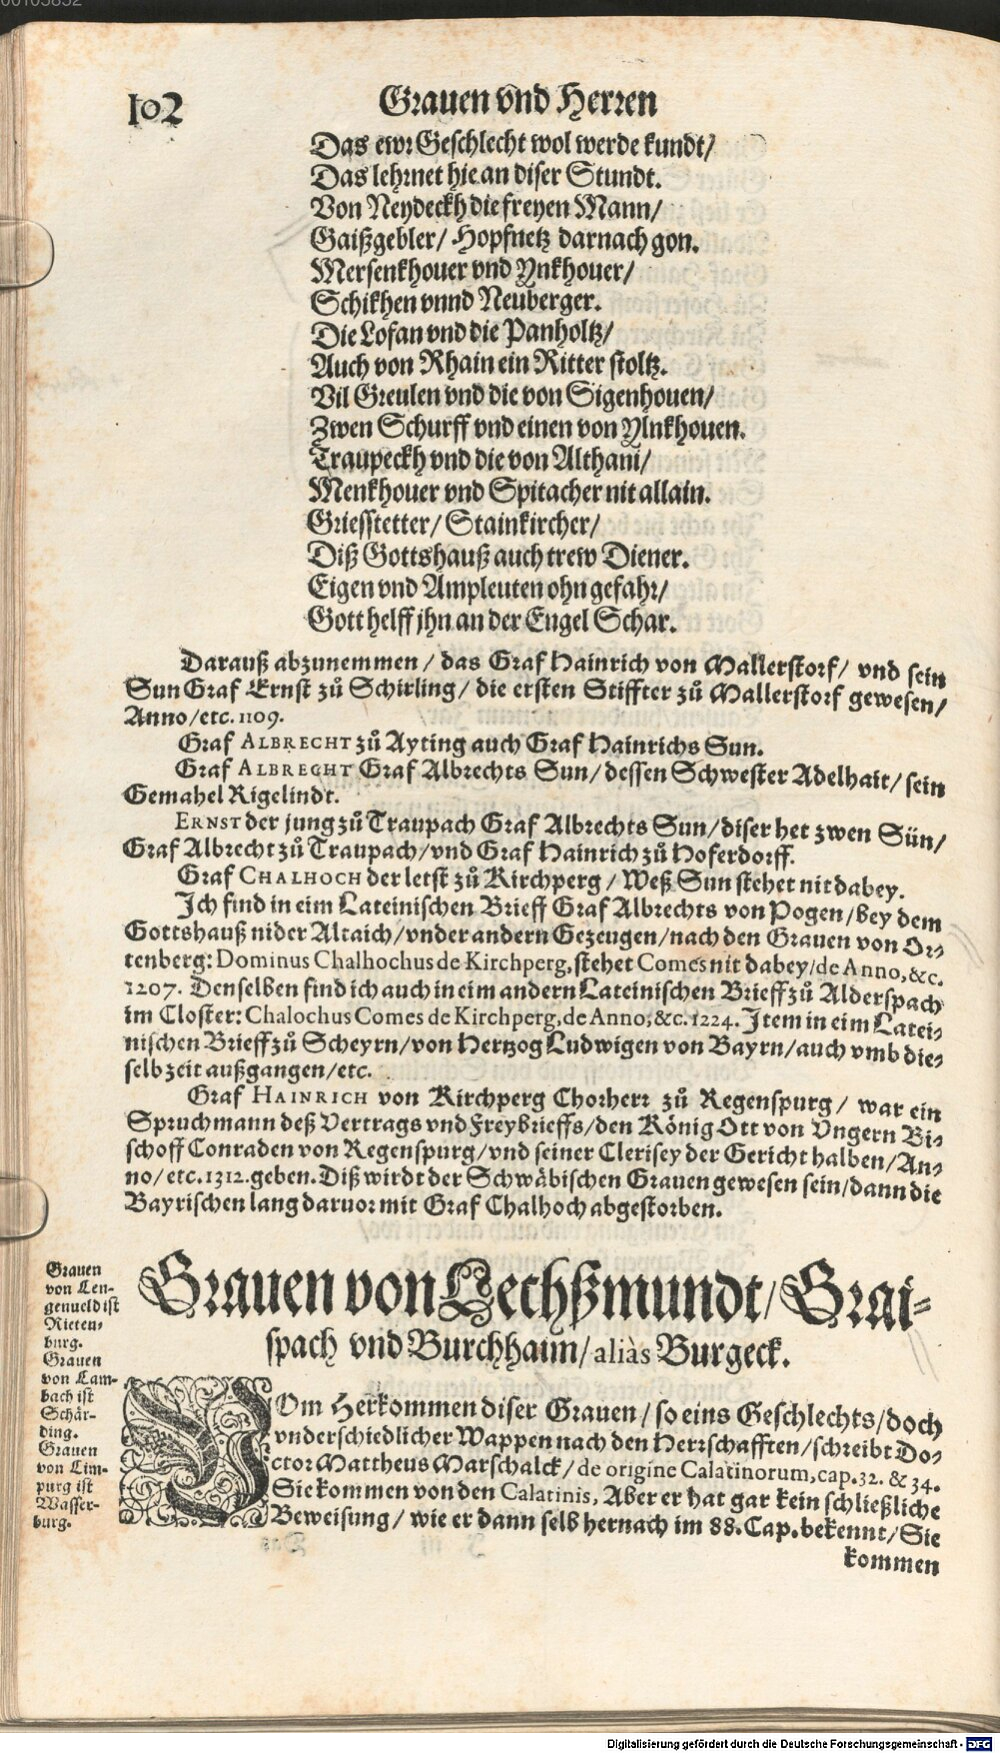 102
Grauen vnd Herren
Das ewr Geschlecht wol werde kundt/
Das lehrnet hie an diser Stundt.
Von Neydeckh die freyen Mann/
Gaißgebler/ Hopfnetz darnach gon.
Mersenkhouer vnd Ynkhouer/
Schikhen vnnd Neuberger.
Die Lofan vnd die Panholtz/
Auch von Rhain ein Ritter stoltz.
Vil Greulen vnd die von Sigenhouen/
Zwen Schurff vnd einen von Ylnkhouen.
Traupeckh vnd die von Althani/
Menkhouer vnd Spitacher nit allain.
Griesstetter/ Stainkircher/
Diß Gottshauß auch trew Diener.
Eigen vnd Ampleuten ohn gefahr/
Gott helff jhn an der Engel Schar.
Darauß abzunemmen/ das Graf Hainrich von Mallerstorf/ vnd sein
Sun Graf Ernst zů Schirling/ die ersten Stiffter zů Mallerstorf gewesen/
Anno/etc. 1109.
Graf ALBRECHT zů Ayting auch Graf Hainrichs Sun.
Graf ALBRECHT Graf Albrechts Sun/dessen Schwester Adelhait/ sein
Gemahel Rigelindt.
ERNST der jung zů Traupach Graf Albrechts Sun/diser het zwen Sün/
Graf Albrecht zů Traupach/vnd Graf Hainrich zů Hoferdorff.
Graf CHALHOCH der letst zů Kirchperg/ Weß Sun stehet nit dabey.
Ich find in eim Lateinischen Brieff Graf Albrechts von Pogen/bey dem
Gottshauß nider Altaich/vnder andern Gezeugen/nach den Grauen von Or-
tenberg: Dominus Chalhochus de Kirchperg, stehet Comes nit dabey/de Anno, &c.
1207. Denselben find ich auch in eim andern Lateinischen Brieff zů Alderspach
im Closter: Chalochus Comes de Kirchperg, de Anno, &c. 1224. Item in eim Latei-
nischen Brieff zů Scheyrn/von Hertzog Ludwigen von Bayrn/auch vmb die-
selb zeit außgangen/etc.
Graf HAINRICH von Kirchperg Chorherr zů Regenspurg/ war ein
Spruchmann deß Vertrags vnd Freybrieffs/den König Ott von Vngern Bi-
schoff Conraden von Regenspurg/vnd seiner Clerisey der Gericht halben/An-
no/ etc. 1312. geben. Diß wirdt der Schwäbischen Grauen gewesen sein/dann die
Bayrischen lang daruor mit Graf Chalhoch abgestorben.
Grauen von Lechßmundt/ Grai-
spach vnd Burchhaim/ aliàs Burgeck.
Grauen
von Len-
genueld ist
Rieten-
burg.
Grauen
von Lam-
bach ist
Schär-
ding.
Grauen
von Lim-
purg ist
Wasser-
burg.
VOm Herkommen diser Grauen/ so eins Geschlechts/doch
vnderschiedlicher Wappen nach den Herrschafften/schreibt Do-
ctor Mattheus Marschalck/ de origine Calatinorum, cap. 32. & 34.
Sie kommen von den Calatinis, Aber er hat gar kein schließliche
Beweisung/ wie er dann selb hernach im 88. Cap. bekennt/Sie
kommen
Digitalisierung gefördert durch die Deutsche Forschungsgemeinschaft - DFG